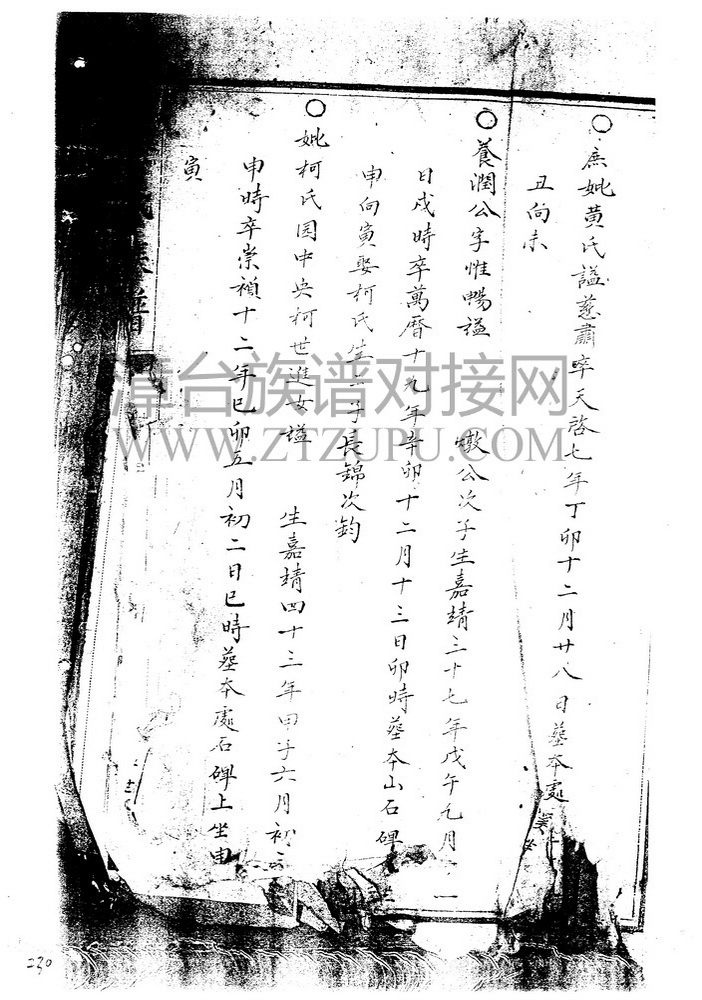 庶妣黄氏謚慈肅卒天啓七年丁卯十二月廿八日塟本處
丑向未
養潤公字惟暢謚 墩公次子生嘉靖三十七年戊午九月
日戌時卒萬曆十九年辛卯十二月十三日卯時塟本山石碑
申向寅娶柯氏生二子長錦次鈞
妣柯氏囯中央柯世進女謚 生嘉靖四十三年甲子六月初
申時卒崇禎十二年已卯五月初二日巳時塟本處石碑上坐申
寅
譜
漳台族谱对接网
WWW.ZTZUPU.COM
230